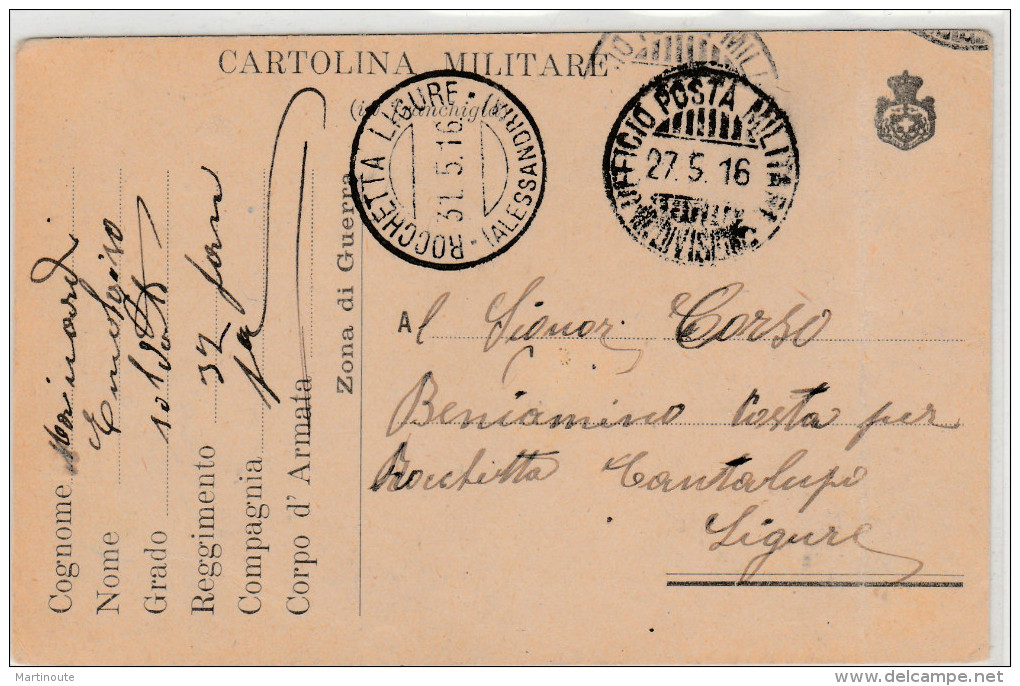 CARTOLINA MILITARE
(in franchigia)
ROCCHETTA LIGURE - (ALESSANDRIA)
31.5.16
UFFICIO POSTA MILITARE
27.5.16
DIVISIONE
Zona di Guerra
Cognome
Nome
Grado soldato
Reggimento 37 fan
Compagnia
Corpo d'Armata
Al Signor Corso
Beniamino Costa per
Rocchetta Cantalupo
Ligure
Martinoute
delcampe.net